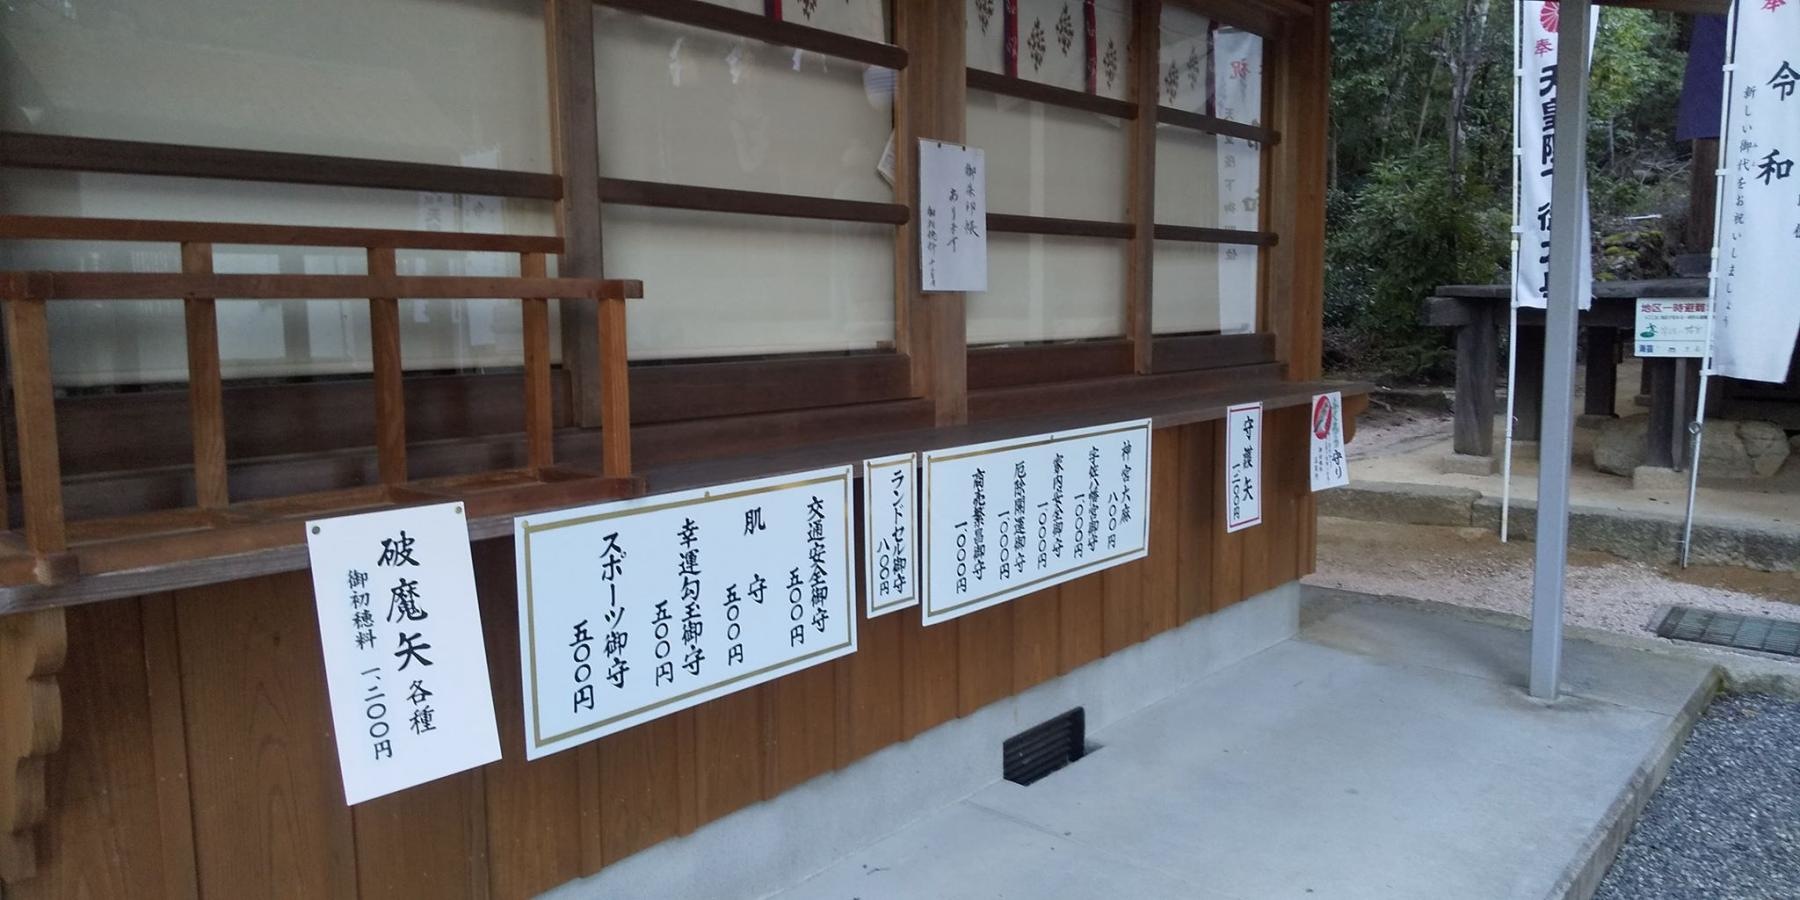 破魔矢各種
御初穂料 一、二〇〇円
交通安全御守
五〇〇円
肌守
五〇〇円
幸運勾玉御守
五〇〇円
スポーツ御守
五〇〇円
ランドセル御守
八〇〇円
神宮大麻
八〇〇円
宇佐八幡宮御守
一〇〇〇円
家内安全御守
一〇〇〇円
厄除開運御守
一〇〇〇円
商売繁昌御守
一〇〇〇円
御朱印帳
あります
守護矢
一二〇〇円
守り
奉
天皇陛下
奉
令和
新しい御代をお祝いしましょう
地区一時避難